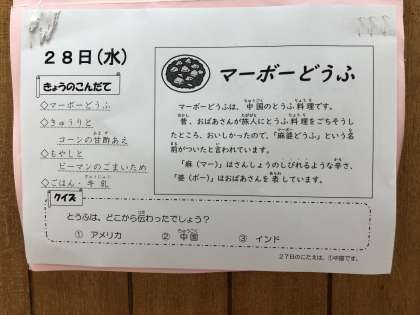 28日(水)
きょうのこんだて
◇マーボーどうふ
◇きゅうりと
コーンの甘酢あえ
◇もやしと
ピーマンのごまいため
◇ごはん・牛乳
マーボーどうふ
マーボーどうふは、中国のとうふ料理です。
昔、おばあさんが旅人にとうふ料理をごちそうし
たところ、おいしかったので、「麻婆どうふ」という名
前がついたと言われています。
「麻(マー)」はさんしょうのしびれるような辛さ、
「婆(ボー)」はおばあさんを表しています。
クイズ
とうふは、どこから伝わったでしょう?
① アメリカ ② 中国 ③ インド
27日のこたえは、①中国です。